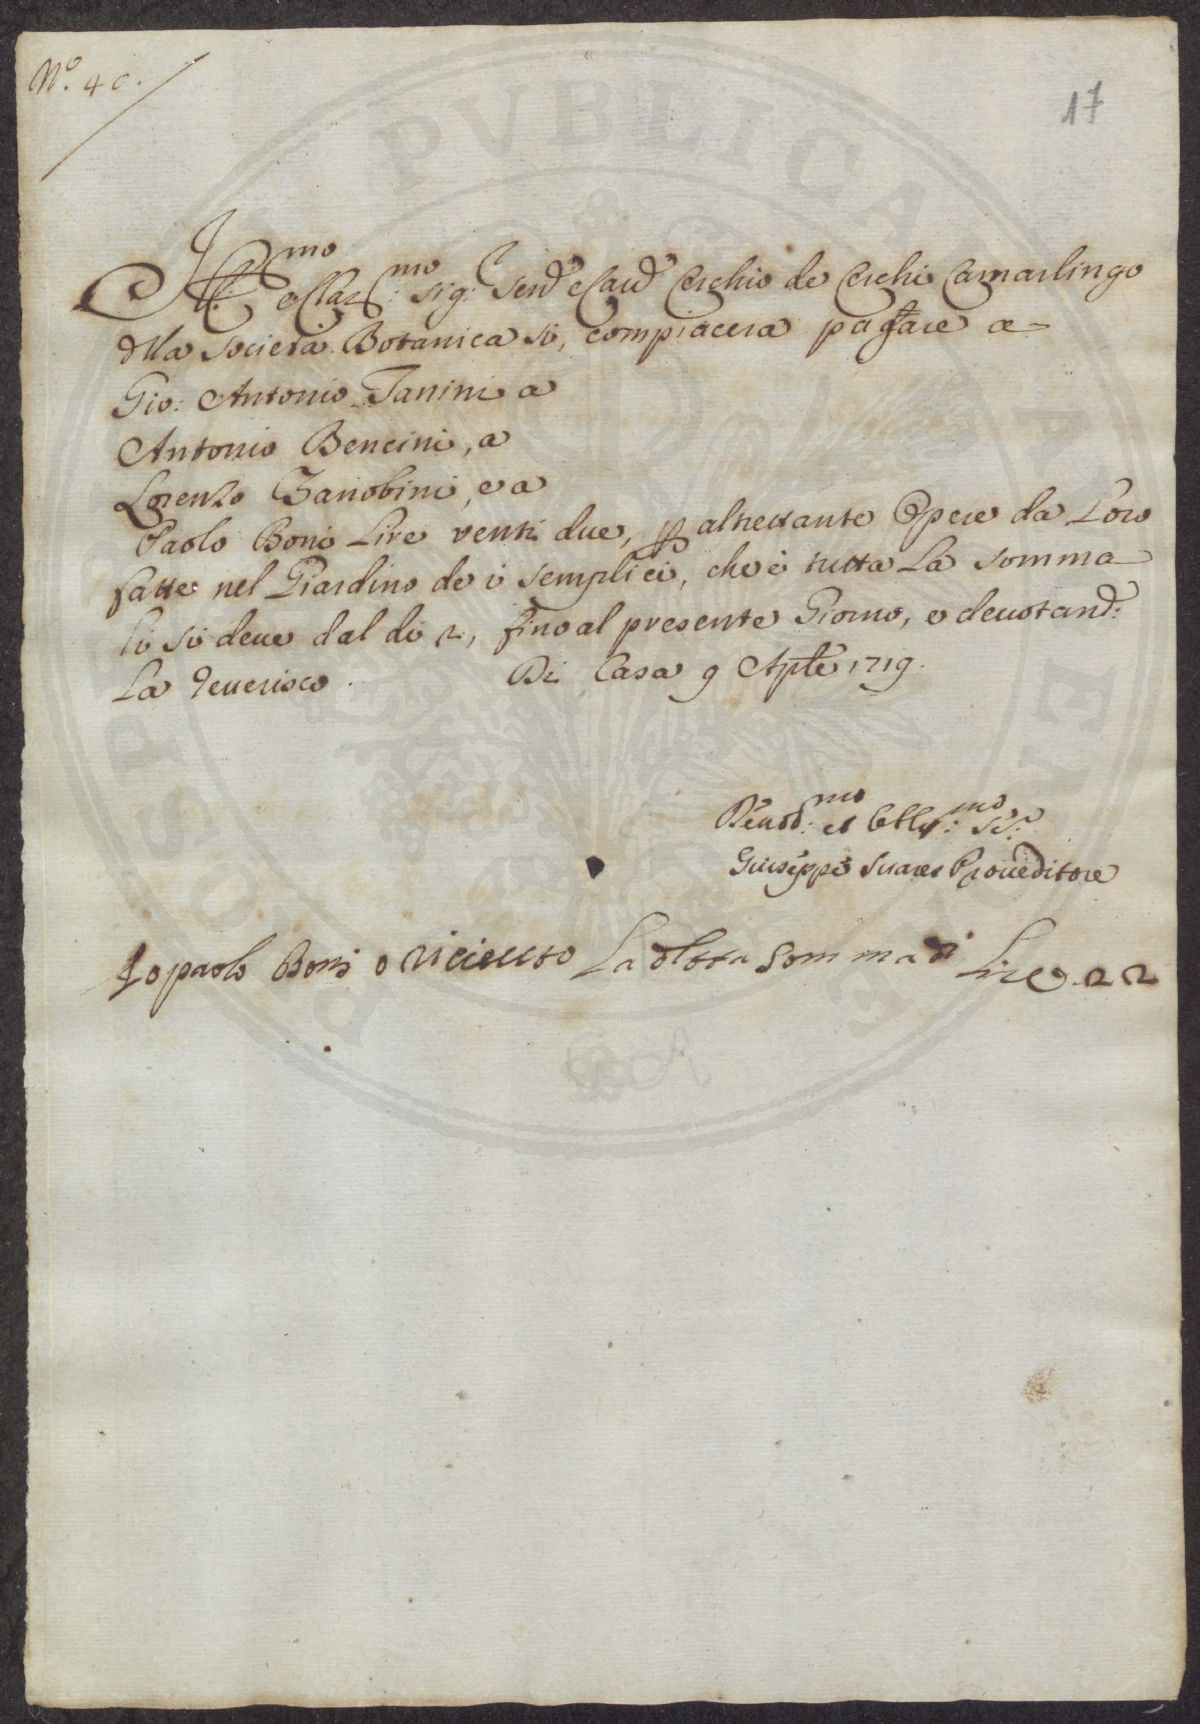 N.º 40.
17
Ill.mo e Clar.mo Sig.r Send e Card Cerchio de Cerchi Camarlingo
dlla Società Botanica si, compiacerà pagare a
Gio: Antonio Fanini a
Antonio Bencini, a
Lorenzo Zanobini, e a
Paolo Boni Lire venti due, p altrettante Opere da Loro
fatte nel Giardino de i semplici, che è tutta La somma
li si deve dal dì 2, fino al presente Giorno, e devotand:
La reverisco. Di Casa 9 Aple 1719.
Devod:mo et Obblig:mo Se:
Giuseppe Suares Proveditore
Io paolo Boni o riceuto La detta Somma di Lire 22
PVBLICA